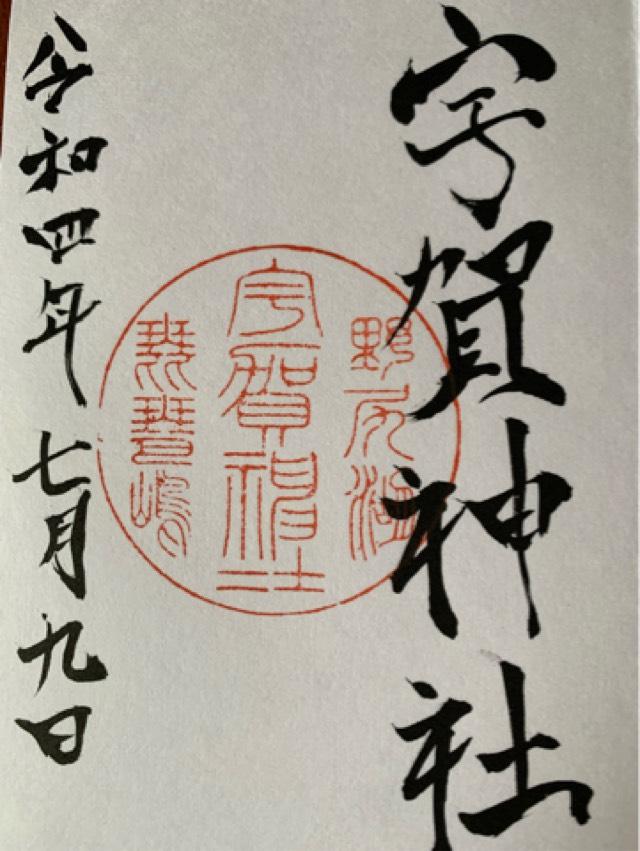 宇賀神社
野尻湖
宇賀神社
琵琶嶋
令和四年七月九日